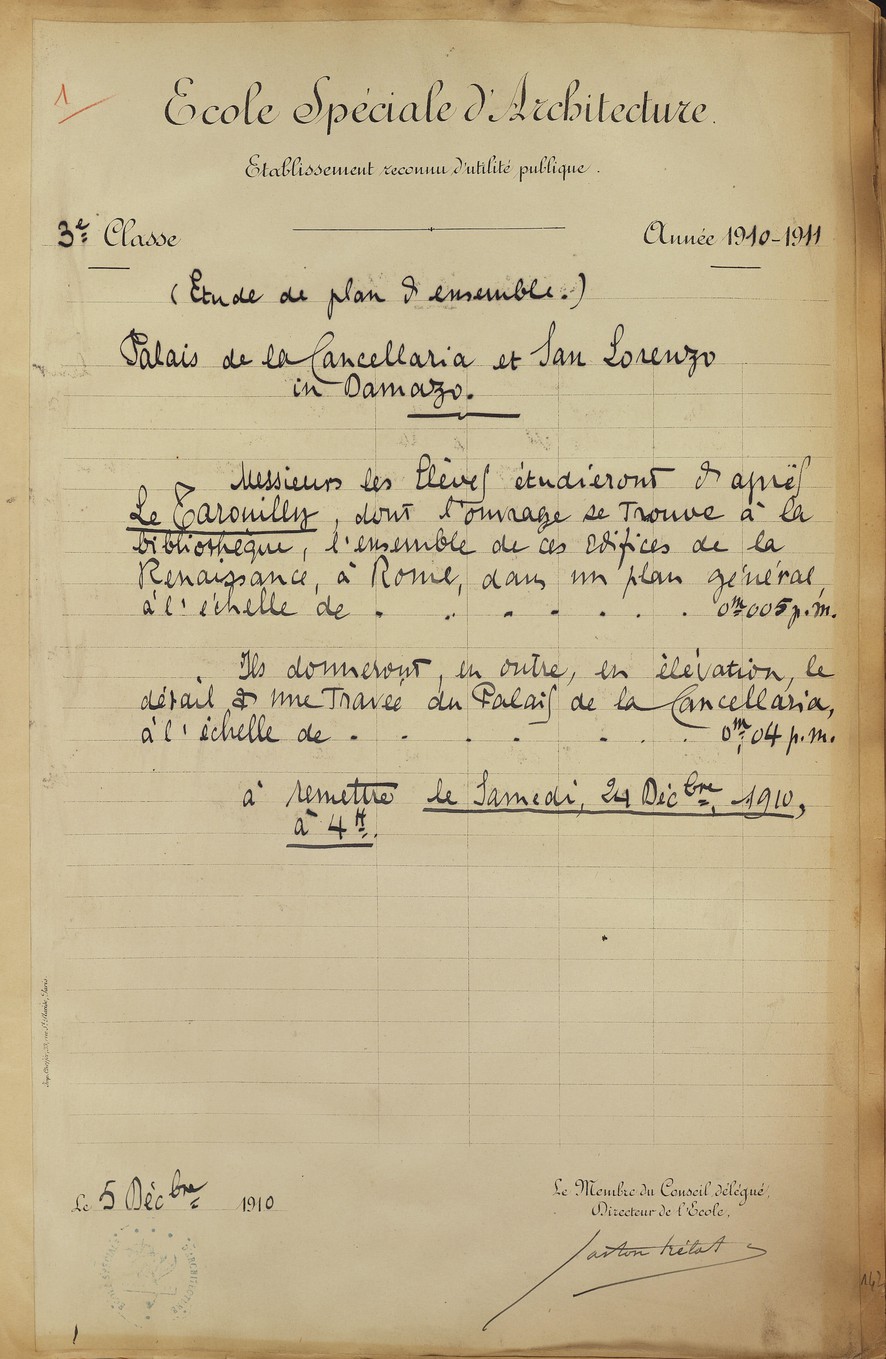 1
Ecole Spéciale d'Architecture.
Etablissement reconnu d'utilité publique.
3e Classe
Année 1910-1911
(Etude de plan d'ensemble.)
Palais de la Cancellaria et San Lorenzo
in Damazo.
Messieurs les Elèves étudieront d'après
Le Tarouilly, dont l'ouvrage se trouve à la
bibliothèque, l'ensemble de ces édifices de la
Renaissance, à Rome, dans un plan général,
à l'échelle de . . . . . . 0m005 p.m.
Ils donneront, en outre, en élévation, le
détail d'une Travée du Palais de la Cancellaria,
à l'échelle de . . . . . . . 0m,04 p.m.
à remettre le Samedi, 24 Décbre, 1910,
à 4H.
Le 5 Décbre 1910
Le Membre du Conseil délégué,
Directeur de l'Ecole,
Gaston Trélat
142